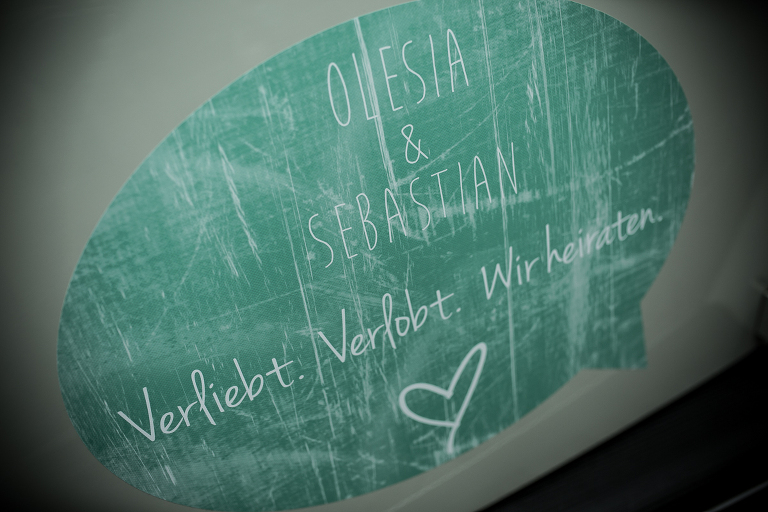 OLESIA
&
SEBASTIAN
Verliebt. Verlobt. Wir heiraten.